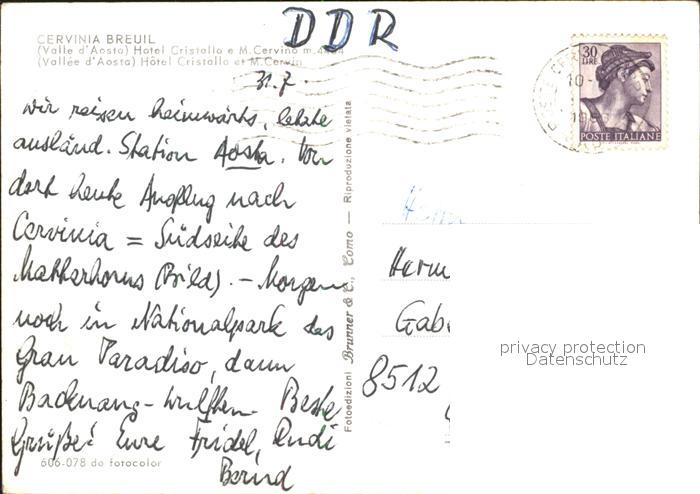 DDR
CERVINIA BREUIL
(Valle d'Aosta) Hotel Cristallo e M. Cervino m.
(Vallée d'Aosta) Hôtel Cristallo et M. Cervin
31.7.
wir reisen heimwärts, letzte
ausländ. Station Aosta. Von
dort heute Ausflug nach
Cervinia = Südseite des
Matterhorns (Bild). – Morgen
noch in Nationalpark das
Gran Paradiso, dann
Backnang – Wulften. Beste
Grüße! Eure Fridel, Rudi
Bernd
606-078 do fotocolor
Fotoedizioni Brunner & C., Como — Riproduzione vietata
30
LIRE
POSTE ITALIANE
Herrn
Herm
Gab
8512
privacy protection
Datenschutz